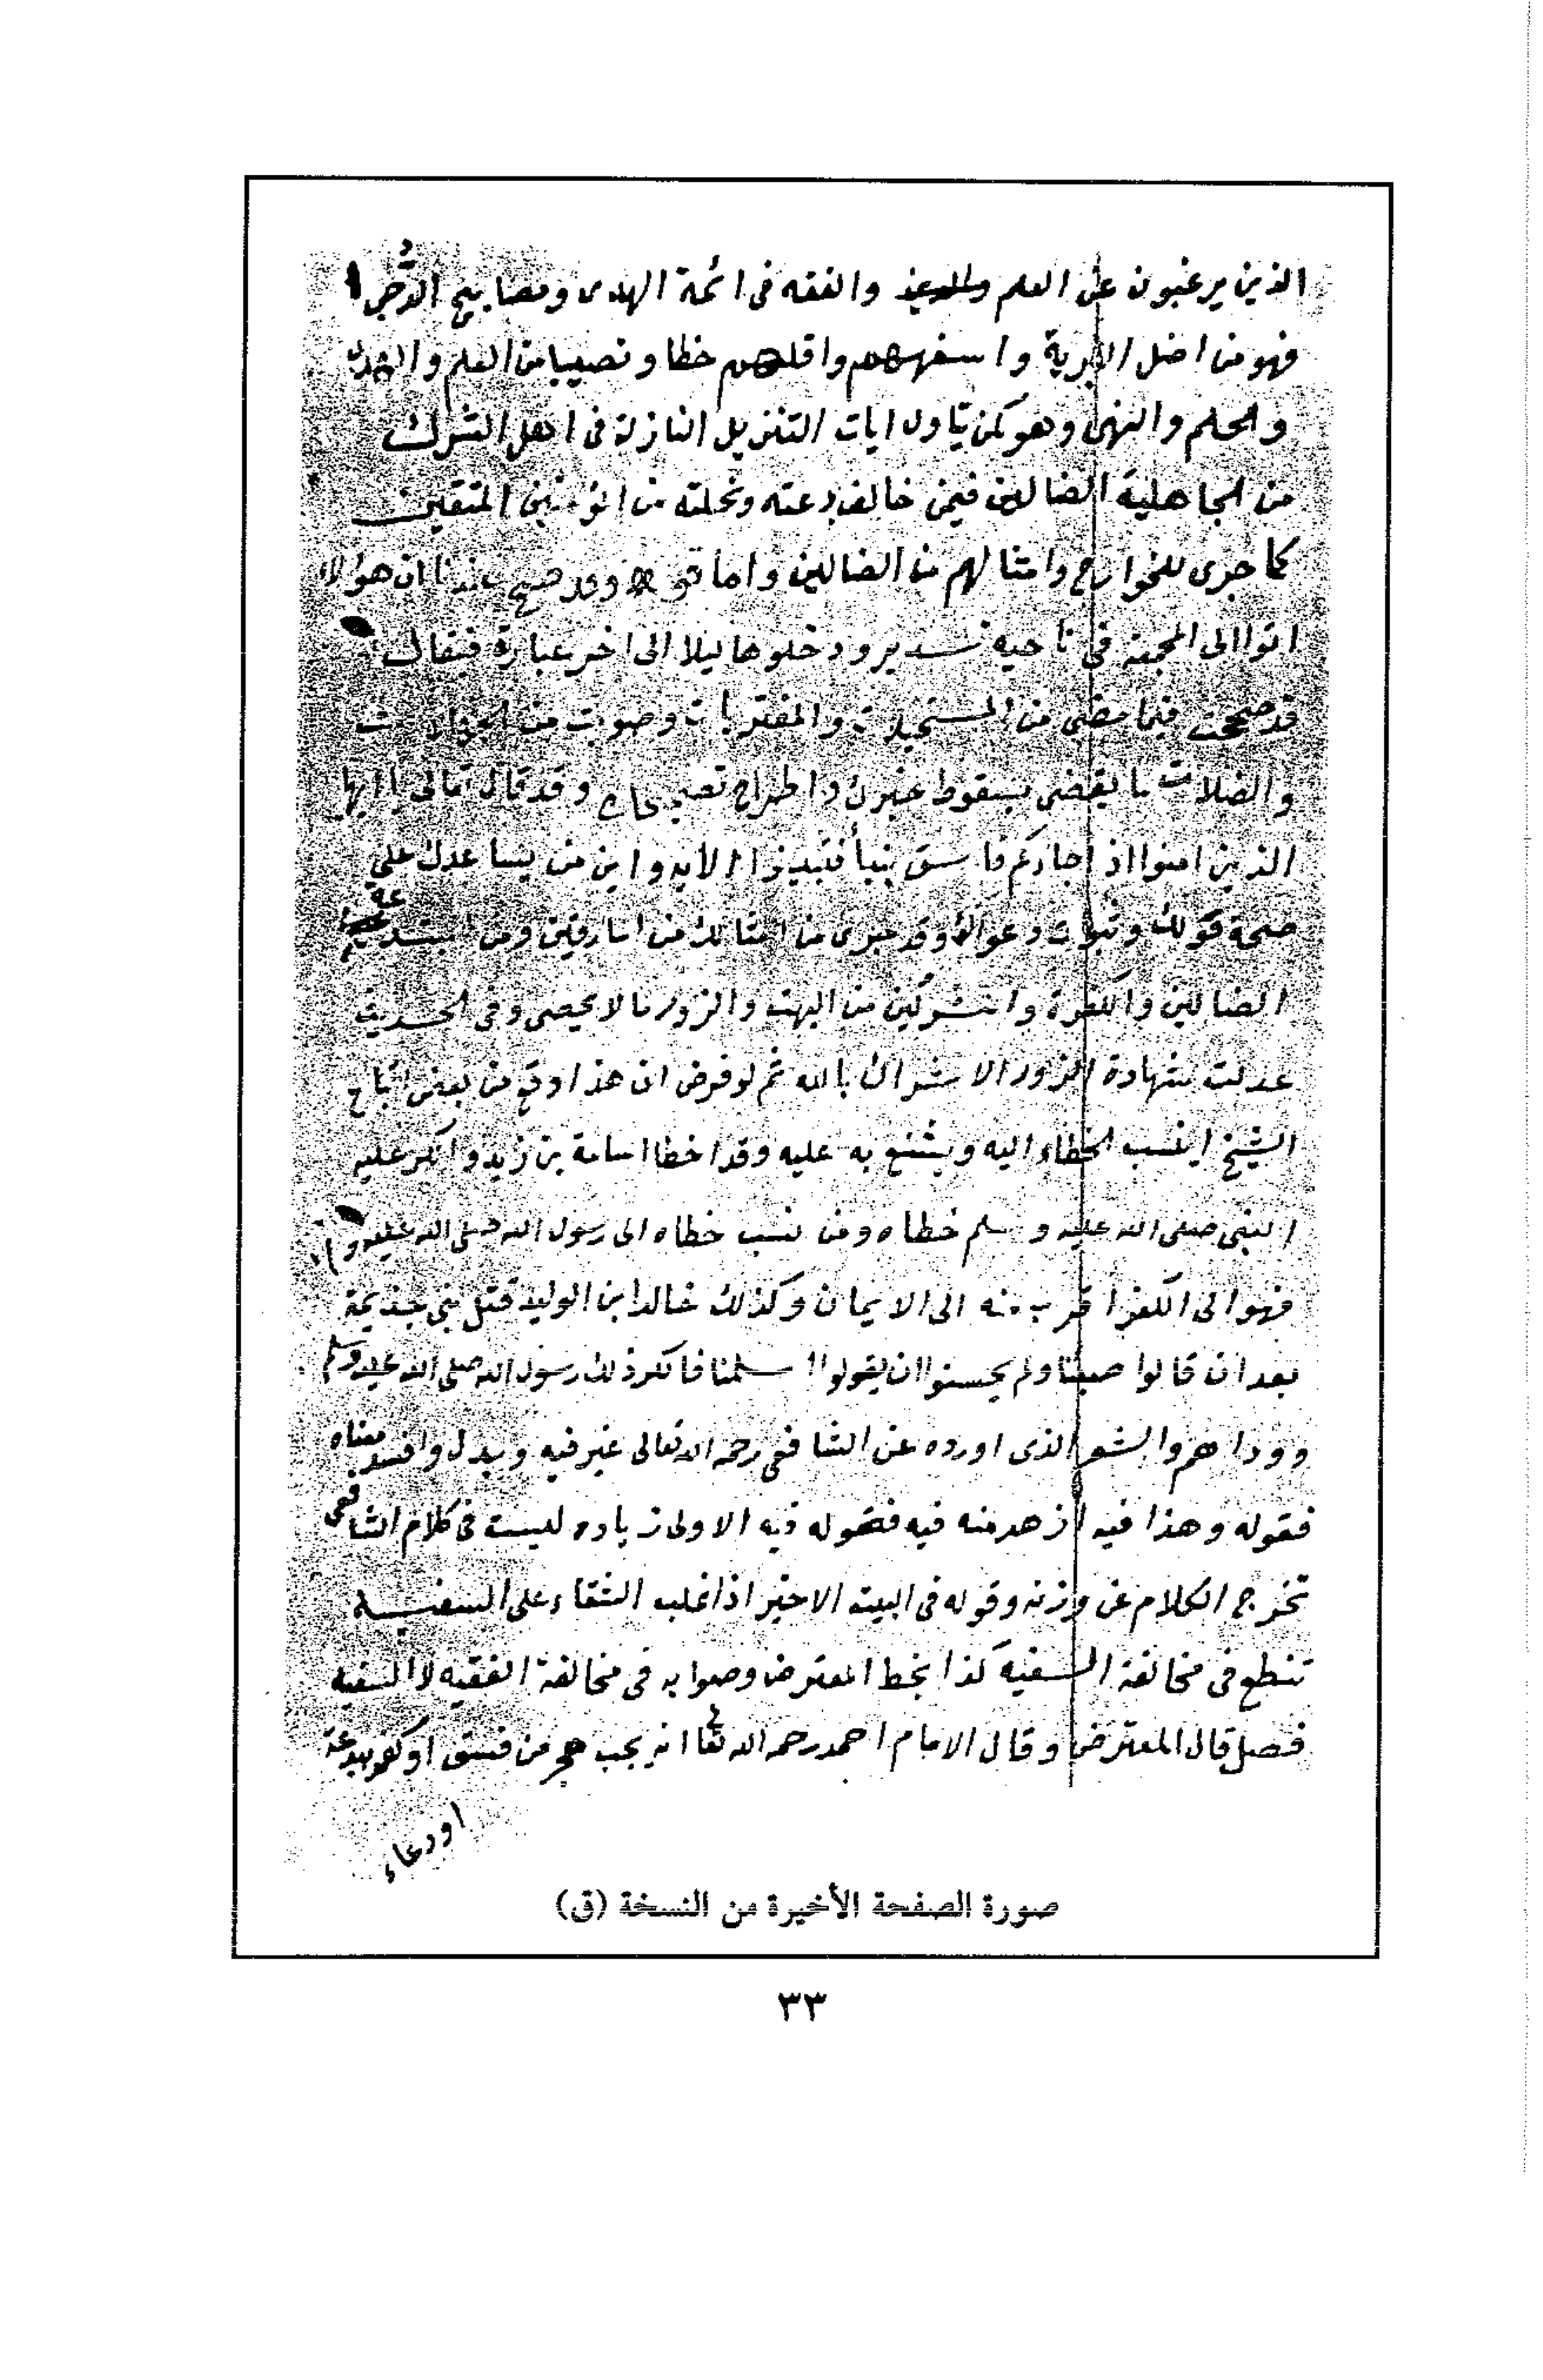 الذين يرغبون عن العلم والفقه فى ائمة الهدى ومصابيح الدجى
فهو من اضل البرية واسفههم واقلهم حظا ونصيبا من العلم والهدى
والحلم والنهى وهو كمن تأول ايات التنزيل النازلة فى اهل الشرك
من الجاهلية الضالين فيمن خالف بدعته ونحلته من المؤمنين المتقين
كما جرى للخوارج وامثالهم من الضالين واما قوله وقد صح عندنا ان هؤلاء
اتوا الى المجمعة فى ناحية سدير ودخلوها ليلا الى اخر عبارة فيقال
قد صححت فيما مضى من المستحيلات والمفتريات وصوبت من الجهالات
والضلالات ما يقضى بسقوط خبرك واطراح تصحيحاتك وقد قال تعالى يا ايها
الذين امنوا اذا جاءكم فاسق بنبأ فتبينوا الآية واين من يساعدك على
صحة قولك وثبوت دعواك وقد جرى من امثالك من المارقين ومن
الضالين والكفرة والمشركين من البهت والزور ما لا يحصى وفى الحديث
عدلت شهادة الزور الاشراك بالله ثم لو فرض ان هذا وقع من بعض اتباع
الشيخ اينسب الخطاء اليه ويشنع به عليه وقد اخطا اسامة بن زيد وانكر عليه
النبى صلى الله عليه وسلم خطاه ومن نسب خطاه الى رسول الله صلى الله عليه
فهو الى الكفر اقرب منه الى الايمان وكذلك خالد ابن الوليد قتل بنى جذيمة
بعد ان قالوا صبئنا ولم يحسنوا ان يقولوا اسلمنا فانكر ذلك رسول الله صلى الله عليه وسلم
ووداهم والشعر الذى اورده عن الشافعى رحمه الله تعالى غير فيه وبدل وافسد معناه
فقوله وهذا فيه ازهد منه فيه فقوله فيه الاولى زياده ليست فى كلام الشافعى
تخرج الكلام عن وزنه وقوله فى البيت الاخير اذا غلب الشقاء على السفيه
تنطع فى مخالفة السفيه كذا بخط المعترض وصوابه فى مخالفة الفقيه لا السفيه
فصل قال المعترض وقال الامام احمد رحمه الله تعا انه يجب هجر من فسق او كفر ببدعة
او دعاء
صورة الصفحة الأخيرة من النسخة (ق)
٣٣